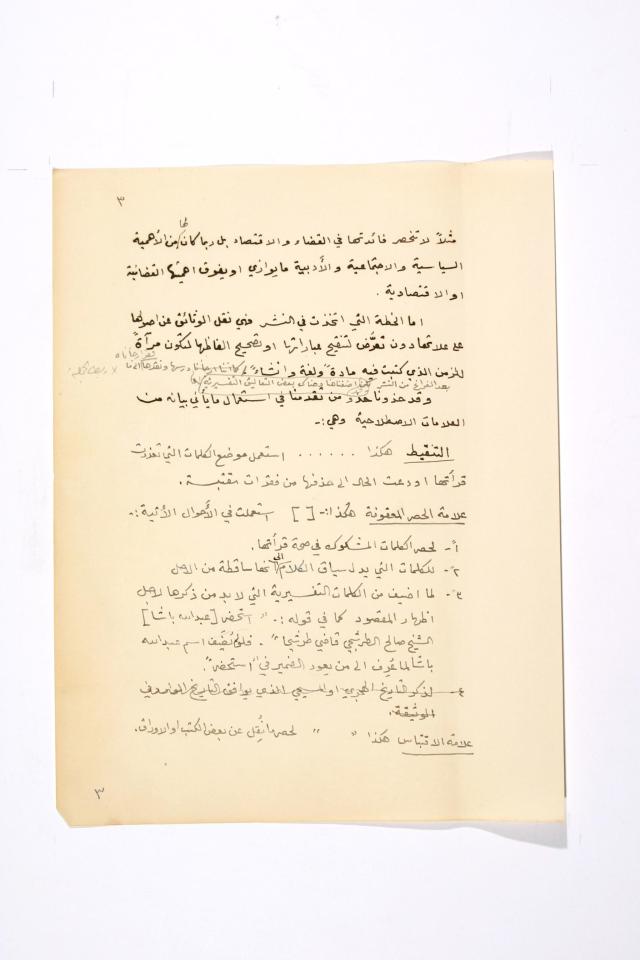 ٣
مثلاً لا تنحصر فائدتها في القضاء والاقتصاد بل ربما كان لها من الأهمية
السياسية والاجتماعية والأدبية ما يوازي او يفوق اهميتها القضائية
والاقتصادية .
اما الخطة التي اتخذت في النشر فهي نقل الوثائق عن اصولها
على علاتها دون تعرّض لتنقيح عباراتها او تصحيح الفاظها لتكون مرآةً
للزمن الذي كتبت فيه مادةً ولغةً وانشاءً
بعد الفراغ من النشر وهناك بعض التعاليق التفسيرية
وقد حذونا حذو من تقدمنا في استعمال ما يأتي بيانه من
العلامات الاصطلاحية وهي :-
التنقيط هكذا . . . . . . استعمل موضع الكلمات التي تعذرت
قرأتها او دعت الحال الى حذفها من فقرات مقتبسة .
علامة الحصر المعقوفة هكذا :- [ ] استعملت في الأحوال الأتية :-
١- لحصر الكلمات المشكوك في صحة قرأتها .
٢- للكلمات التي يدل سياق الكلام الى انها ساقطة من الاصل
٣- لما اضيف من الكلمات التفسيرية التي لا بد من ذكرها لاجل
اظهار المقصود كما في قوله :- " استحضر [عبدالله باشا]
الشيخ صالح الطرشيحي قاضي طرشيحا " . فلو لم يُضَف اسم عبدالله
باشا لما عُرف الى من يعود الضمير في "استحضر" .
٤- لذكر التاريخ الهجري او المسيحي الذي يوافق التاريخ
الوثيقة .
علامة الاقتباس هكذا " " لحصر ما نُقِل عن بعض الكتب او الاوراق .
٣